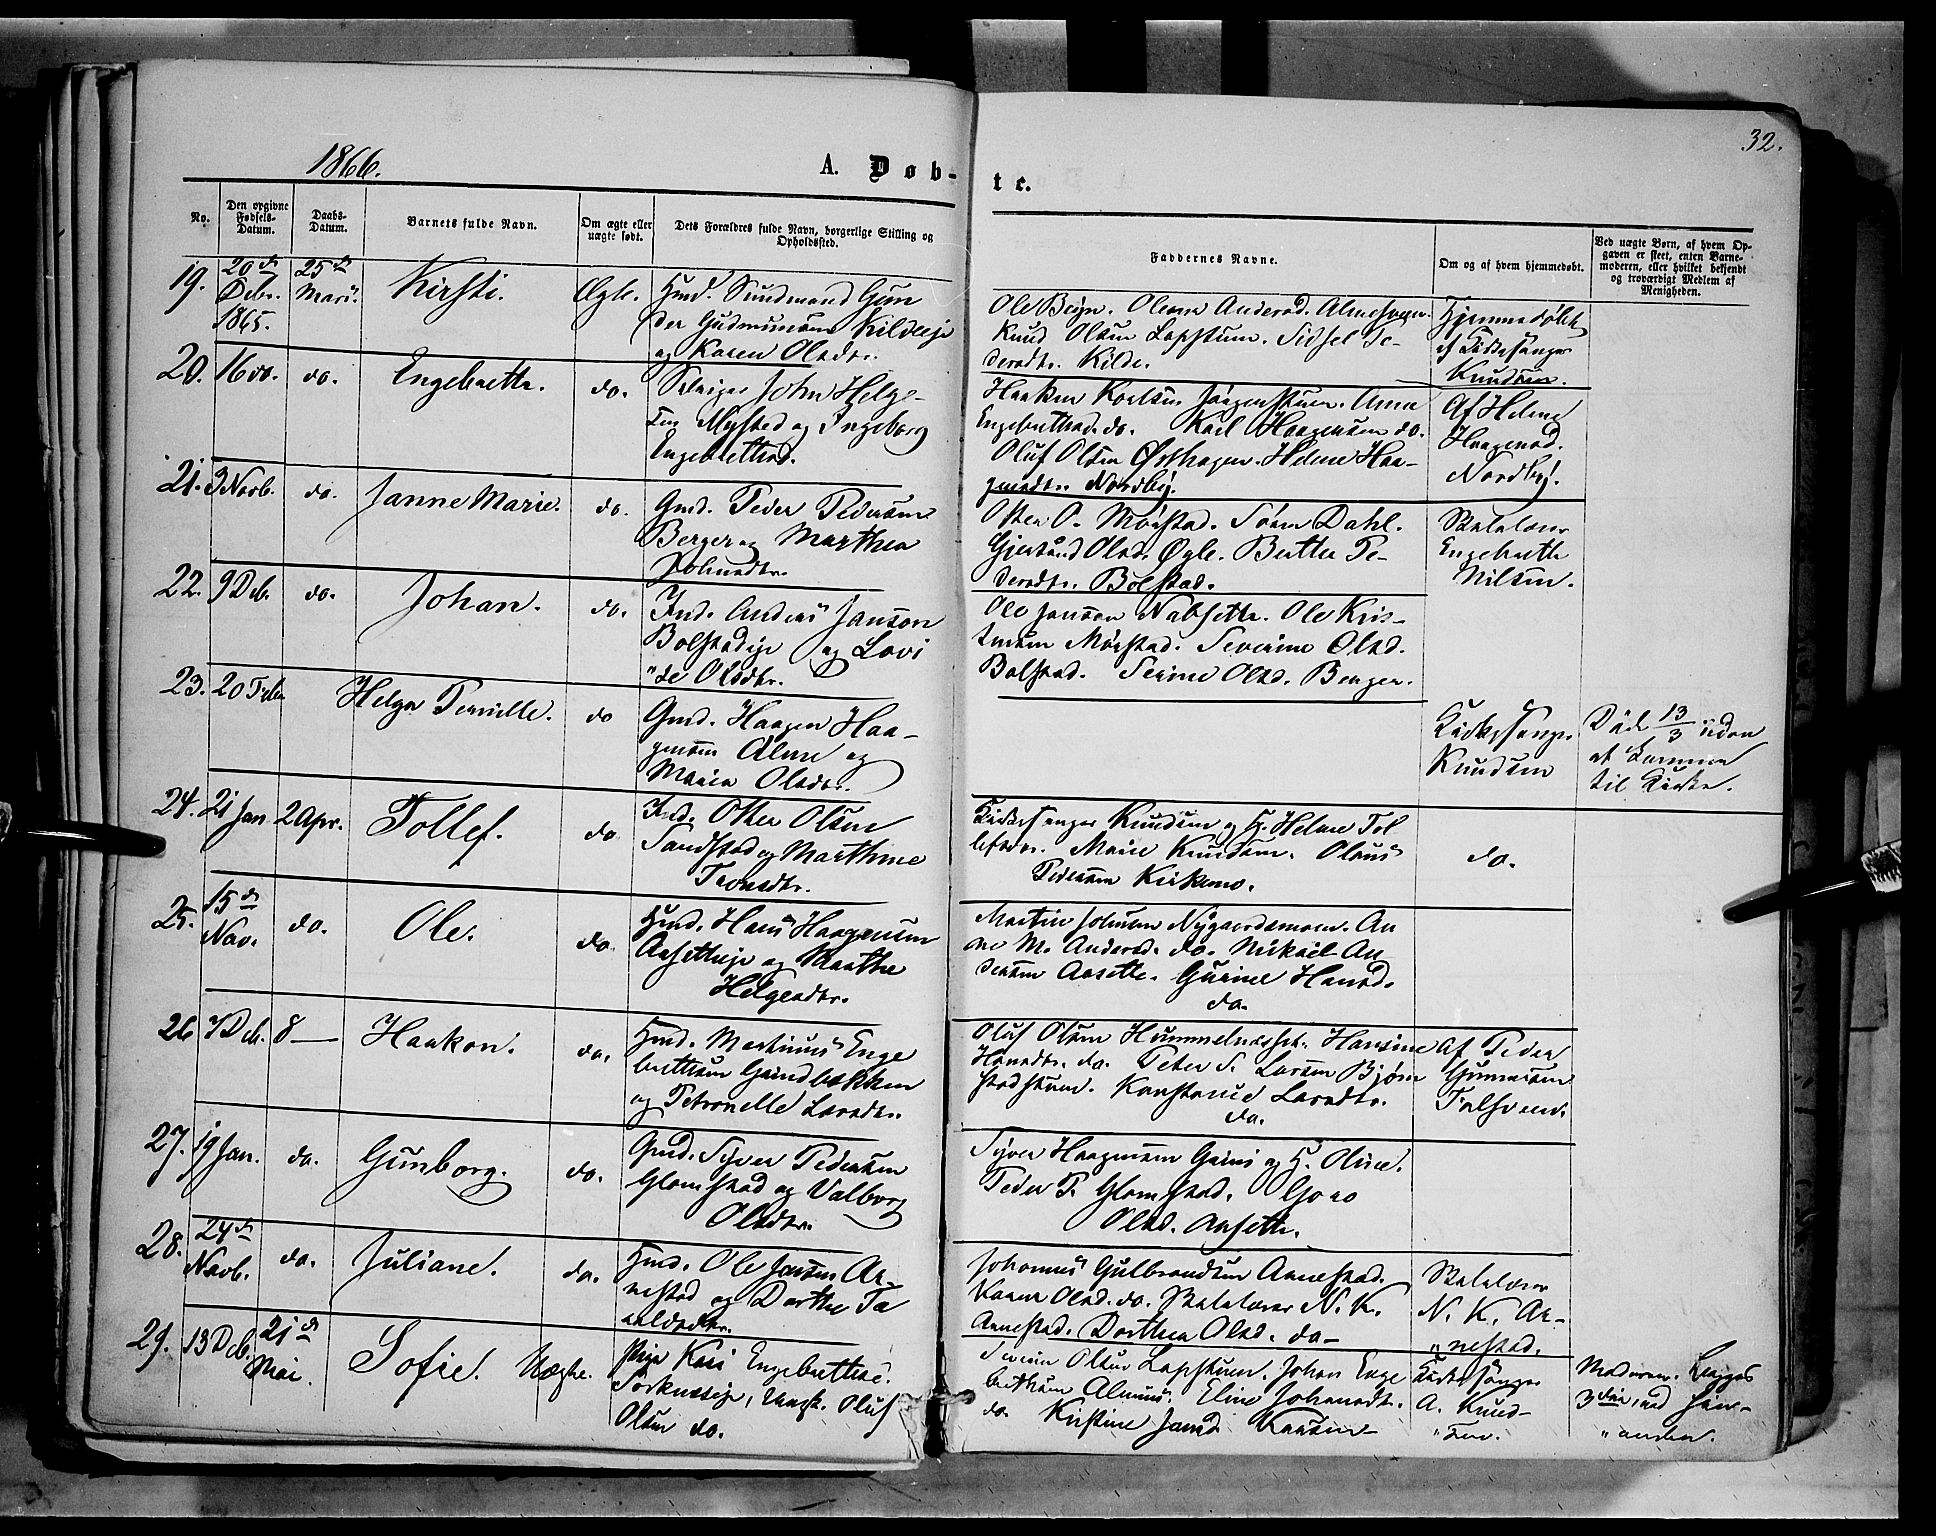 1866.
A. Døb-
te.
32.
No.
Den opgivne Fødsels-Datum.
Daabs-Datum.
Barnets fulde Navn.
Om ægte eller uægte født.
Dets Forældres fulde Navn, borgerlige Stilling og Opholdssted.
Faddernes Navne.
Om og af hvem hjemmedøbt.
Ved uægte Børn, af hvem Opgaven er skeet, enten Barnemoderen, eller hvilket bekjendt og troværdigt Medlem af Menigheden.
19. 20de Debr. 1865. 25de Mars. Kirsti. Ægte.
og Karen Olsdtr.
Knud Olsen Lapstuen. Sidsel Pe-
dersdtr. Kilde.
Hjemmedøbt
af Kirkesanger
Knudsen.
20. 16 do. do. Engebrette. do.
John Helge-
sen Mysted og Ingeborg
Engebrettsd.
Engebrettsd. do. Karl Haagensen do.
Oluf Olsen Østhagen. Helene Haa-
gensdtr. Nordby.
Af Helene
Haagensd.
Nordby.
21. 3 Novb. do. Janne Marie. do.
Gmd. Peder Pedersen
Berger og Marthea
Johnsdtr.
Otter O. Mørstad. Søren Dahl.
Olsd. Øgle. Berthe Pe-
dersdtr. Bolstad.
Skolelærer
Engebreth
Nilsen.
22. 9 Deb. do. Johan. do.
Ind. Anders Janson
Bolstadeje og Lovi
"se Olsdtr.
Ole Jansen Nabsettr. Ole Kris-
tensen Mørstad. Severine Olsd.
Bolstad. Serine Olsd. Berger.
23. 20 Febr. Helga Pernille. do
Gmd. Haagen Haa-
gensen Alme og
Maria Olsdtr.
Kirkesanger
Knudsen
Død 13/3 uden
at komme
til Kirke.
24. 21 Jan 2 Apr. Tollef. do
Ind. Otter Olsen
Sandstad og Marthine
Tronsdtr.
Kirkesanger Knudsen og H. Helene Tol
lefsdtr. Marie Knudsen. Olaus
Pedersen Kirkemo.
do.
25. 15de Nov. do. Ole. do.
Hmd. Hans Haagensen
Aasetteje og Marthe
Helgesdtr.
Martin Johnsen Nygaardsmoen. An
ne M. Andersd. do. Mikael An
dersen Aasette. Gurine Hansd.
do.
26 7 Deb. 8 — Haakon. do.
Hmd. Martinus Enge
brettsen Grindbakken
og Petronelle Larsdtr.
Oluf Olsen Hummelnæsset. Hansine
Hansdtr. do. Peter S. Larsen Bjørn
stadstuen. Konstanse Larsdtr.
do.
Af Peder
Gunnersen
27. 19 Jan. do. Gunborg. do.
Gmd. Syver Pedersen
Glomstad og Valborg
Olsdtr.
Syver Haagensen Grini og H. Oline.
Peder P. Glomstad. Goro
Olsd. Aasette.
28. 24de Novb. do. Juliane. do.
Hmd. Ole Jensen Ar-
nestad og Dorthe Pa
Johannes Gulbrandsen Arnestad.
Karen Olsd. do. Skolelærer N. K.
Arnestad. Dorthea Olsd. do—
Skolelærer
N. K. Ar-
"nestad.
29. 13 Deb. 21de Mai. Sofie. Uægte.
Pige Kari Engebrettsd.
Ungk. Oluf
Olsen do.
Olsen Lapstuen. Johan Enge
brettsen Almeus. Eline Johannsdtr.
do. Kristine Jansd
Kirkesanger
A. Knud-
"sen.
Moderen. Begges
3die